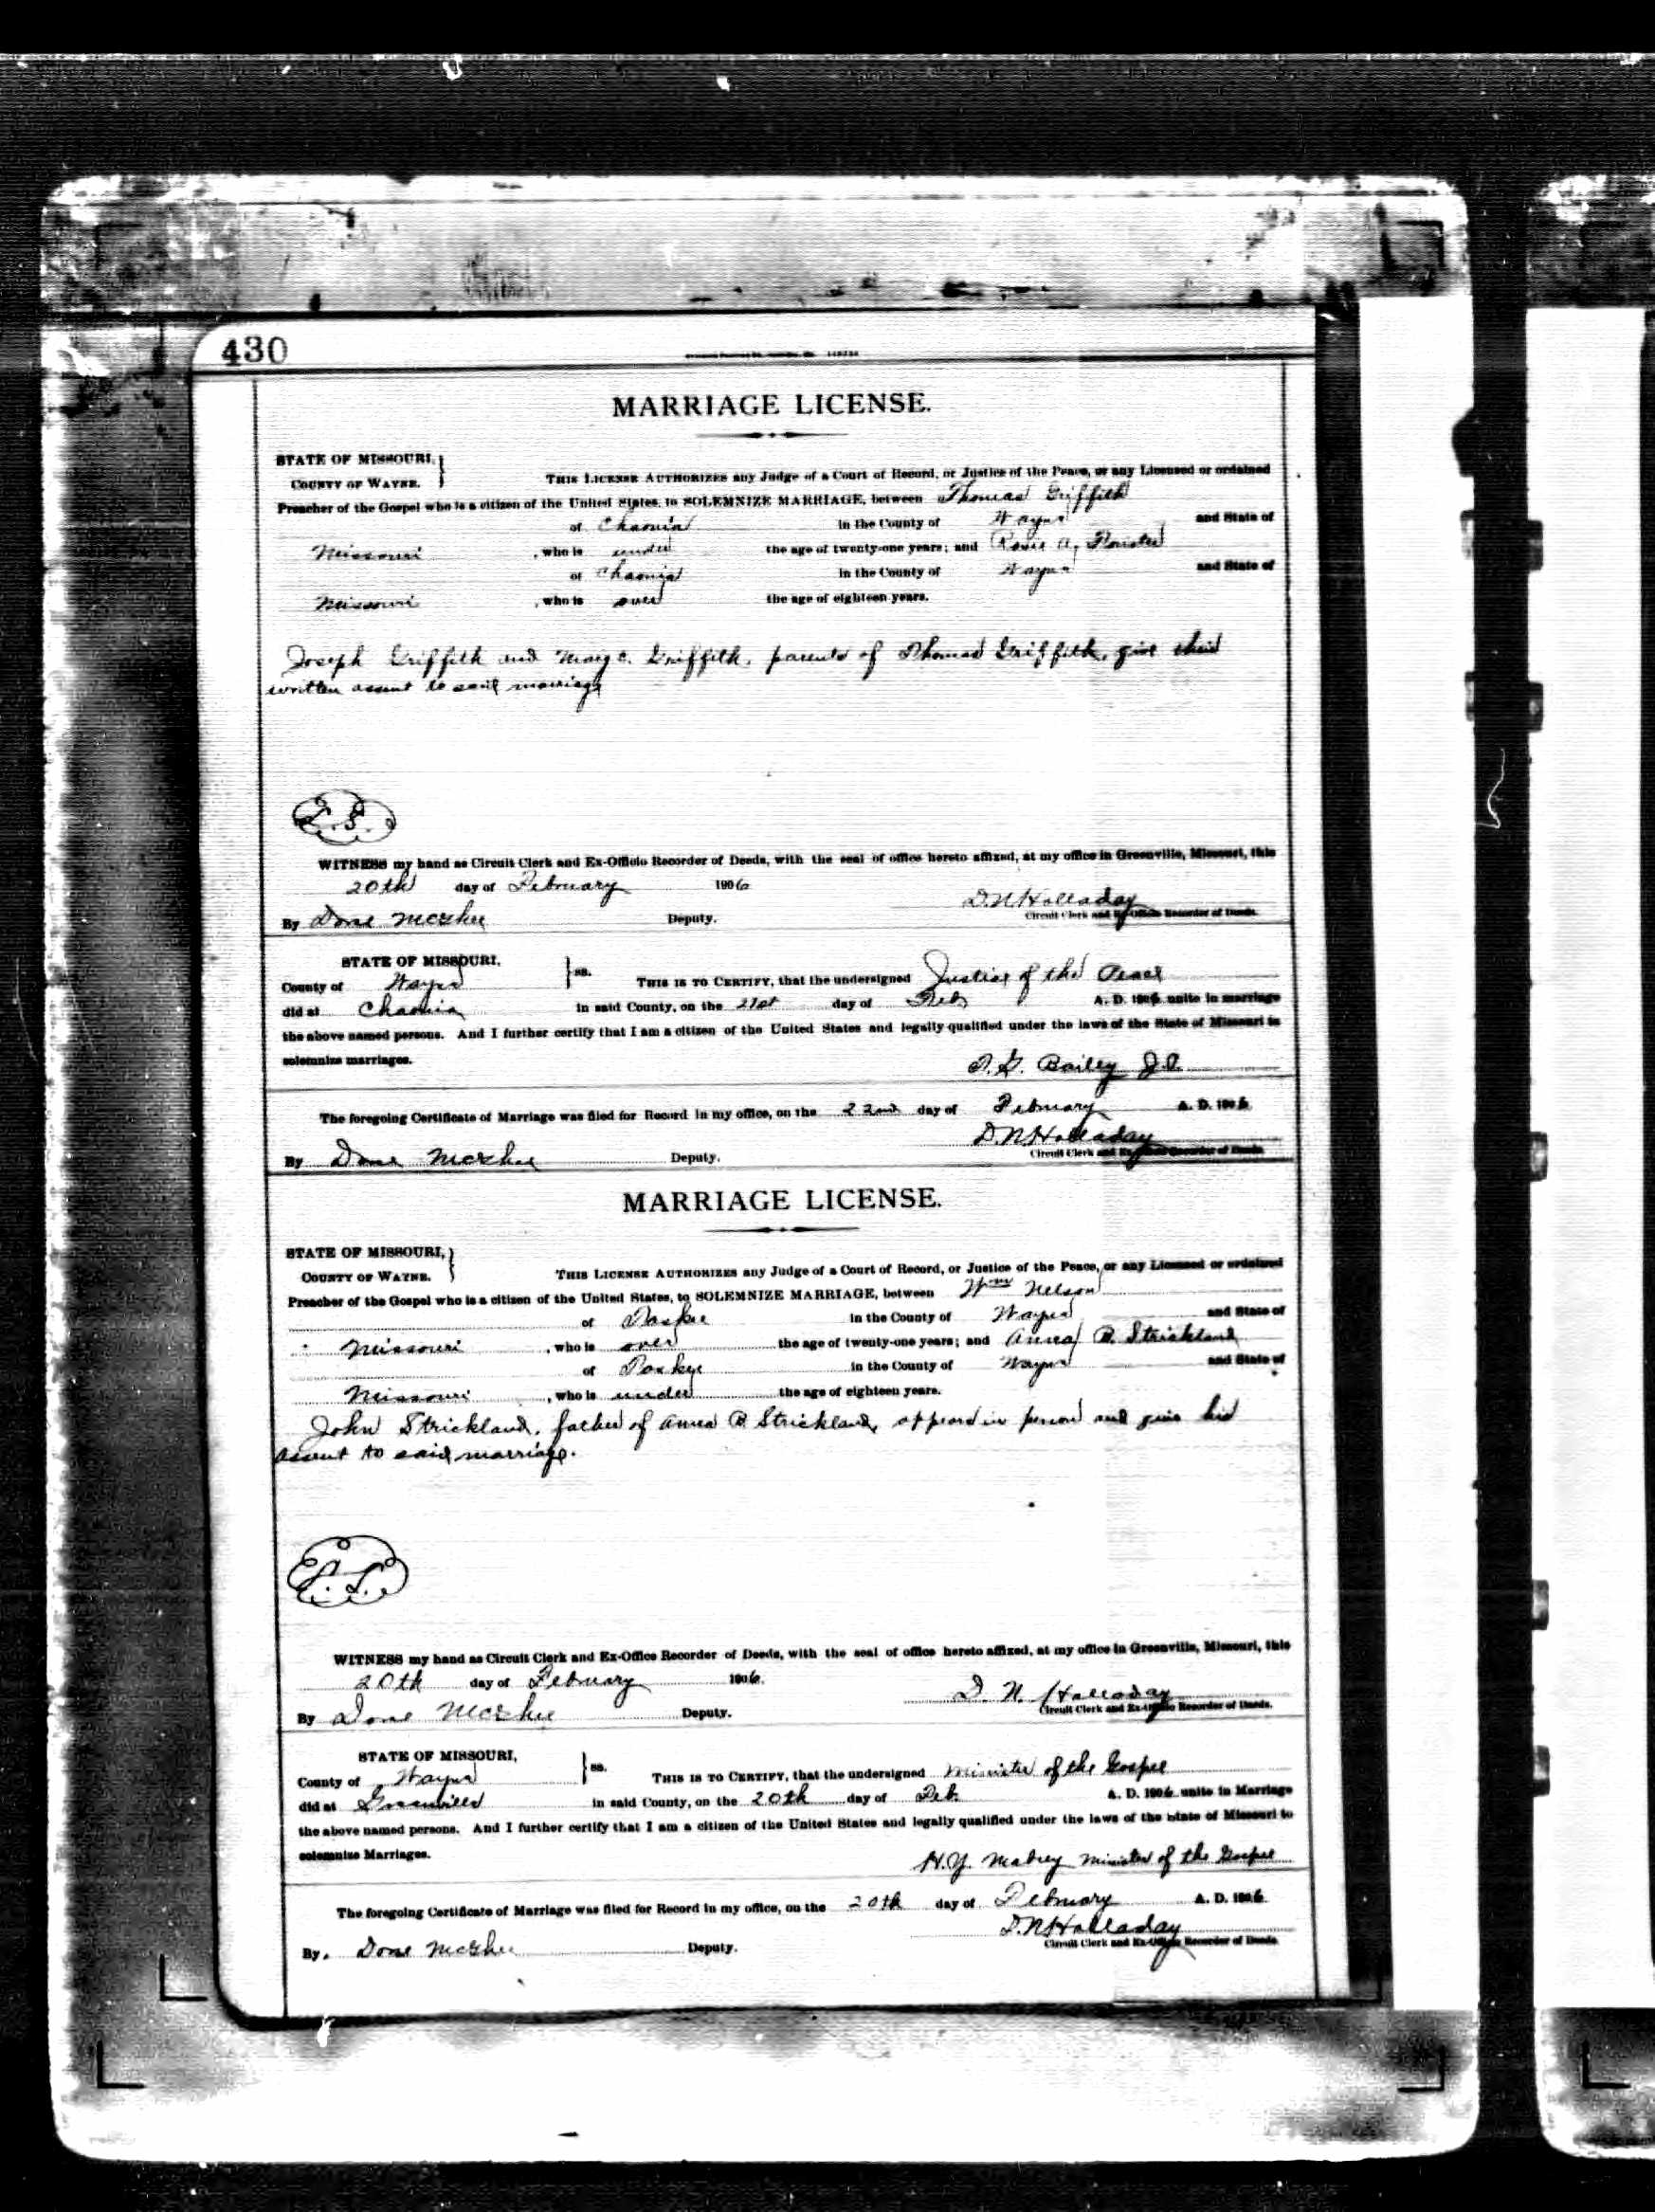 430
MARRIAGE LICENSE.
STATE OF MISSOURI,
COUNTY OF WAYNE.
THIS LICENSE AUTHORIZES any Judge of a Court of Record, or Justice of the Peace, or any Licensed or ordained
Preacher of the Gospel who is a citizen of the United States, to SOLEMNIZE MARRIAGE, between Thomas Griffith
of Chaonia in the County of Wayne and State of
Missouri, who is under the age of twenty-one years; and Rosie A,
of Chaonia in the County of Wayne and State of
Missouri, who is over the age of eighteen years.
Joseph Griffith and Mary C. Griffith, parents of Thomas Griffith, give their
written assent to said marriage
L.S.
WITNESS my hand as Circuit Clerk and Ex-Officio Recorder of Deeds, with the seal of office hereto affixed, at my office in Greenville, Missouri, this
20th day of February 1906
D.N Holladay
Circuit Clerk and Ex-Officio Recorder of Deeds.
By Done McGhee Deputy.
STATE OF MISSOURI,
County of Wayne ss. THIS IS TO CERTIFY, that the undersigned Justice of the Peace
did at Chaonia in said County, on the 21st day of Feb A. D. 1906 unite in marriage
the above named persons. And I further certify that I am a citizen of the United States and legally qualified under the laws of the State of Missouri to
solemnize marriages.
Bailey J.P.
The foregoing Certificate of Marriage was filed for Record in my office, on the 22nd day of February A. D. 1906
D.N Holladay
Circuit Clerk and Ex-Officio Recorder of Deeds.
By Done McGhee Deputy.
MARRIAGE LICENSE.
STATE OF MISSOURI,
COUNTY OF WAYNE.
THIS LICENSE AUTHORIZES any Judge of a Court of Record, or Justice of the Peace, or any Licensed or ordained
Preacher of the Gospel who is a citizen of the United States, to SOLEMNIZE MARRIAGE, between Wm Nelson
of in the County of Wayne and State of
Missouri, who is over the age of twenty-one years; and Anna B. Strickland
of in the County of Wayne and State of
Missouri, who is under the age of eighteen years.
John Strickland, father of Anna B Strickland, appeared in person and give his
assent to said marriage.
L.S.
WITNESS my hand as Circuit Clerk and Ex-Office Recorder of Deeds, with the seal of office hereto affixed, at my office in Greenville, Missouri, this
20th day of February 1906.
D. N. Holladay
Circuit Clerk and Ex-Officio Recorder of Deeds.
By Done McGhee Deputy.
STATE OF MISSOURI,
County of Wayne ss. THIS IS TO CERTIFY, that the undersigned Minister of the Gospel
did at Greenville in said County, on the 20th day of Feb A. D. 1906 unite in Marriage
the above named persons. And I further certify that I am a citizen of the United States and legally qualified under the laws of the State of Missouri to
solemnize Marriages.
H.Y. Mabrey Minister of the Gospel
The foregoing Certificate of Marriage was filed for Record in my office, on the 20th day of February A. D. 1906.
D.N Holladay
Circuit Clerk and Ex-Officio Recorder of Deeds.
By. Done McGhee Deputy.